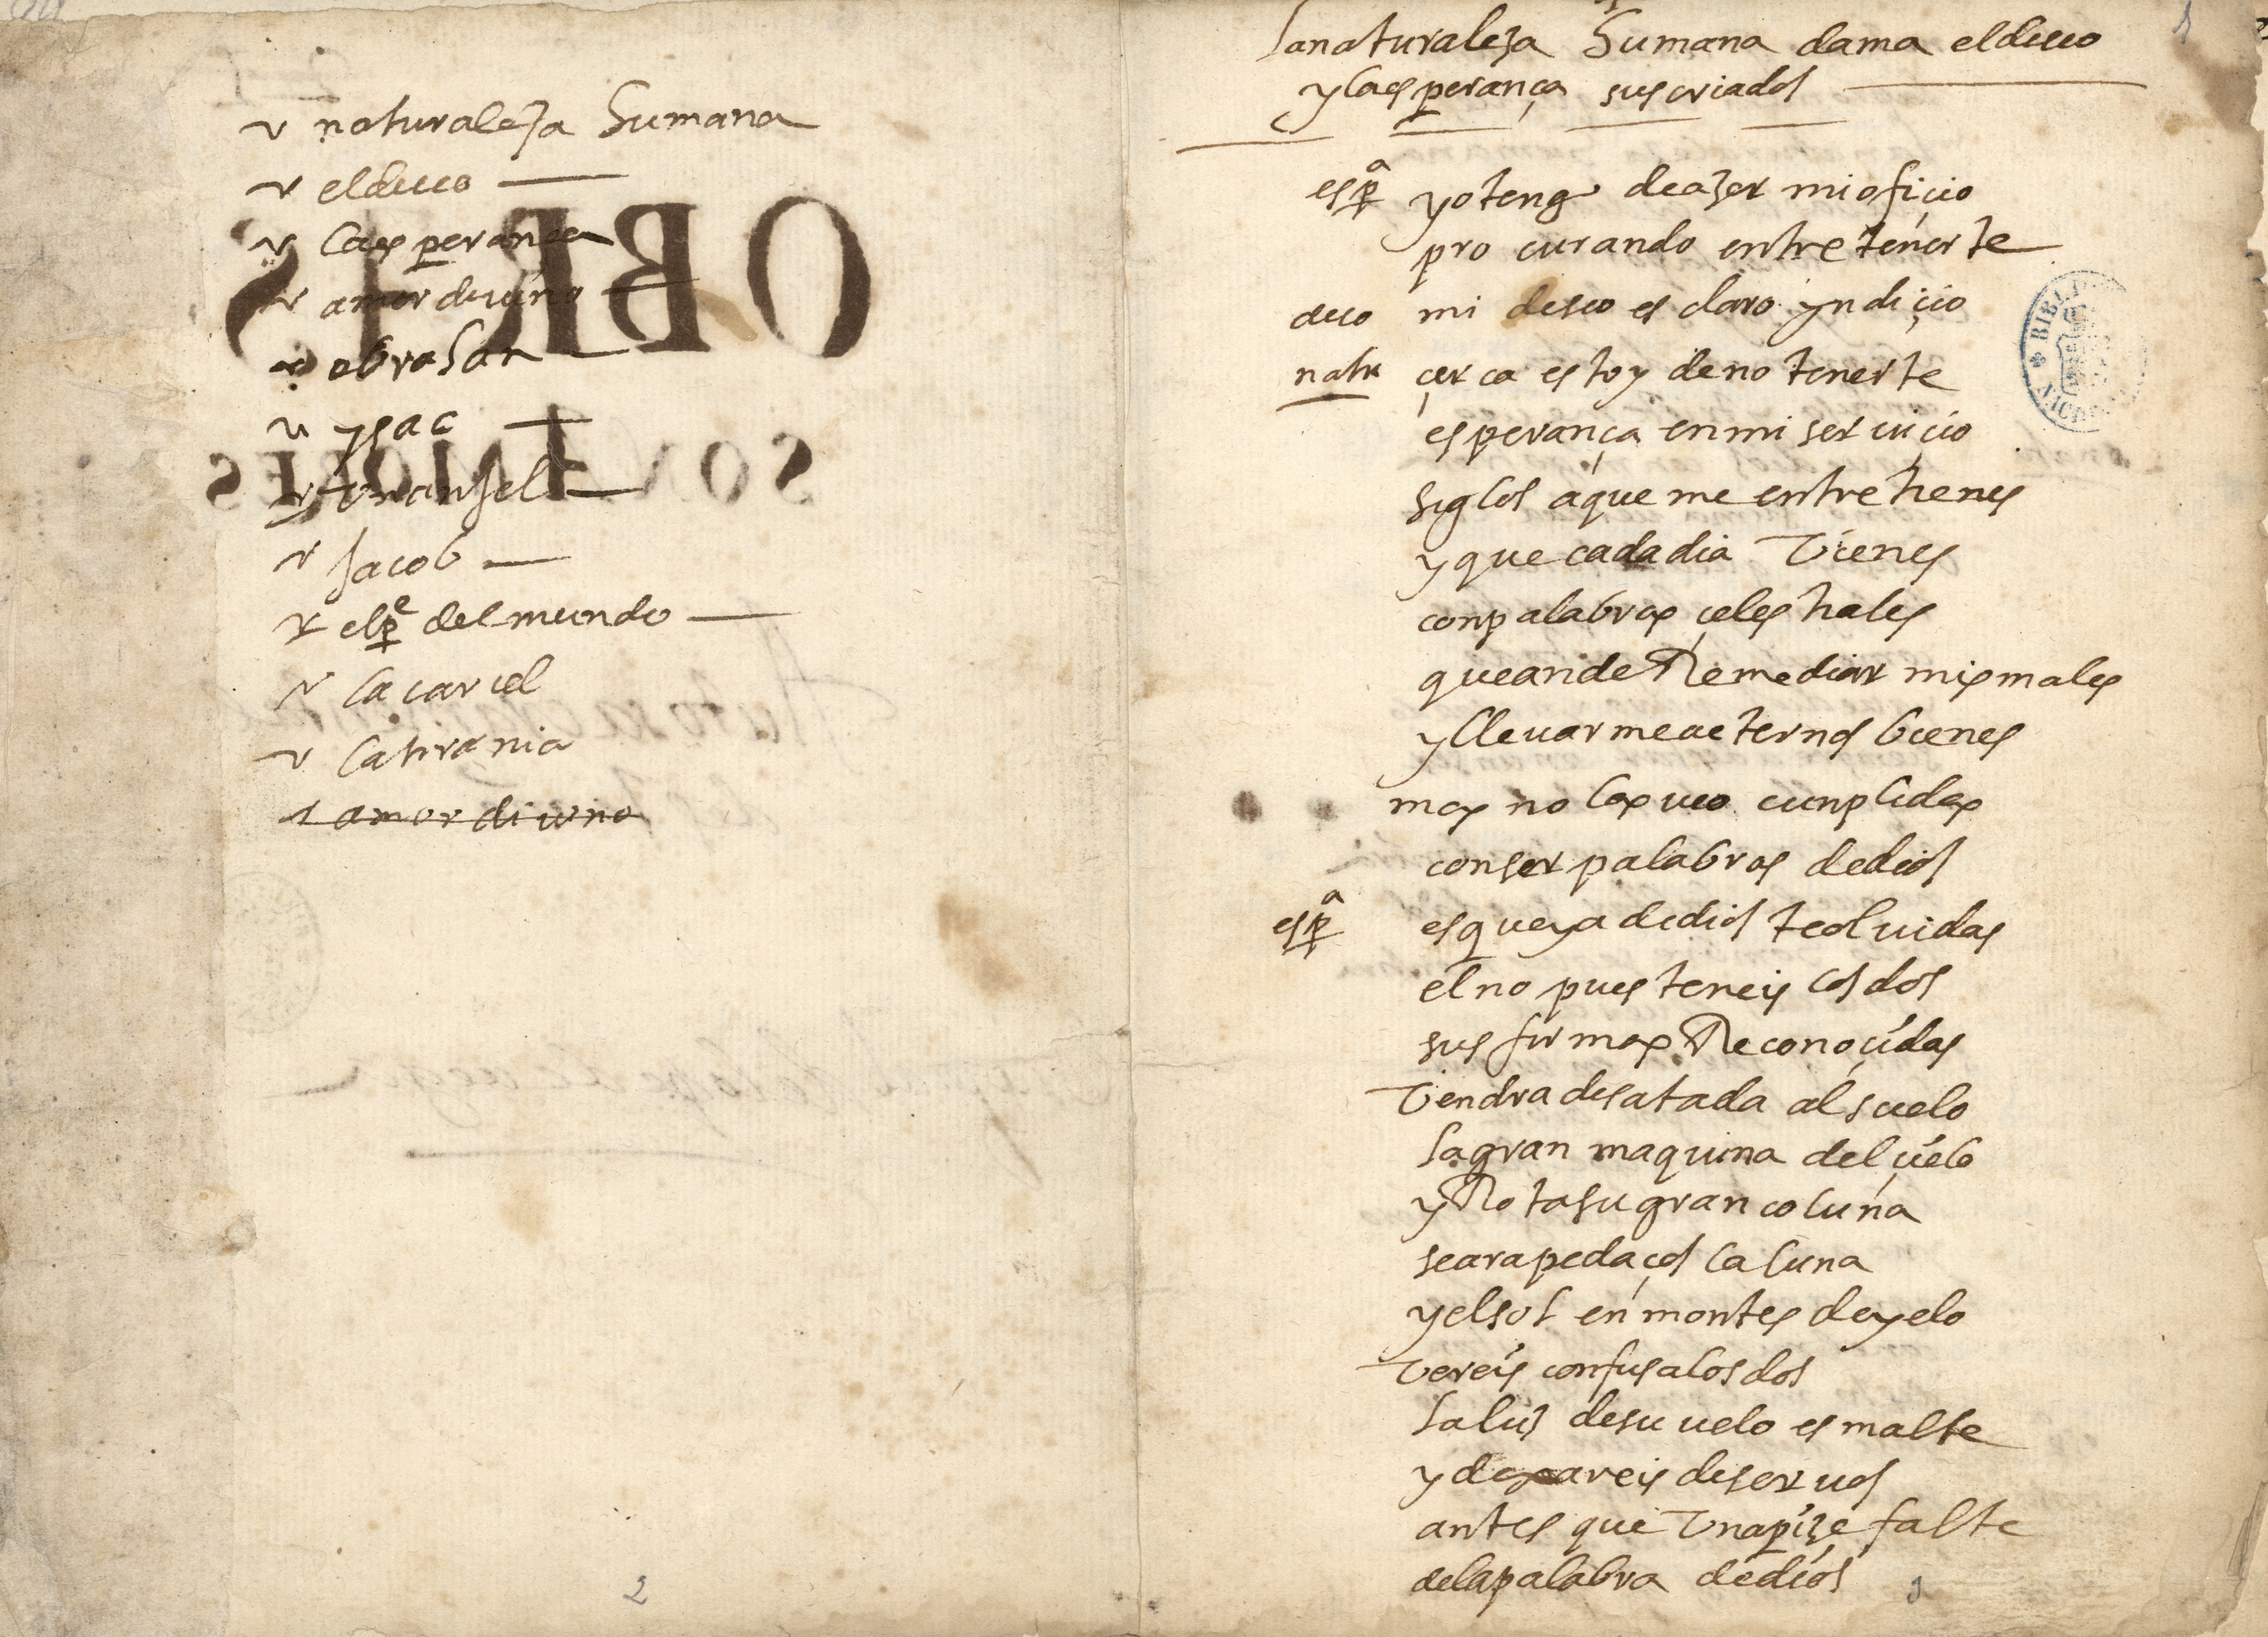 naturaleza humana
el deseo
la esperança
amor divino
abrahan
ysac
un anjel
jacob
el pe del mundo
la carcel
la tirania
amor divino
2
la naturaleza humana dama el deseo
y la esperança sus criados
1
espa yo tengo de azer mi oficio
procurando entretenerte
deseo mi deseo es claro yndiçio
natu çerca estoy de no tenerte
esperança en mi serviçio
siglos a que me entretienes
y que cada dia vienes
con palabras çelestiales
que an de Remediar mis males
y llevarme a eternos bienes
mas no las veo cunplidas
con ser palabras de dios
espa es que ya de dios te olvidas
el no pues teneis los dos
sus firmas Reconoçidas
vendra desatada al suelo
la gran maquina del çielo
y Rota su gran coluna
se ara pedaços la luna
y el sol en montes de yelo
vereis confusa los dos
la luz de su velo esmalte
y dexareis de ser vos
antes que una pize falte
de la palabra de dios
3
BIBLIOTECA NACIONAL